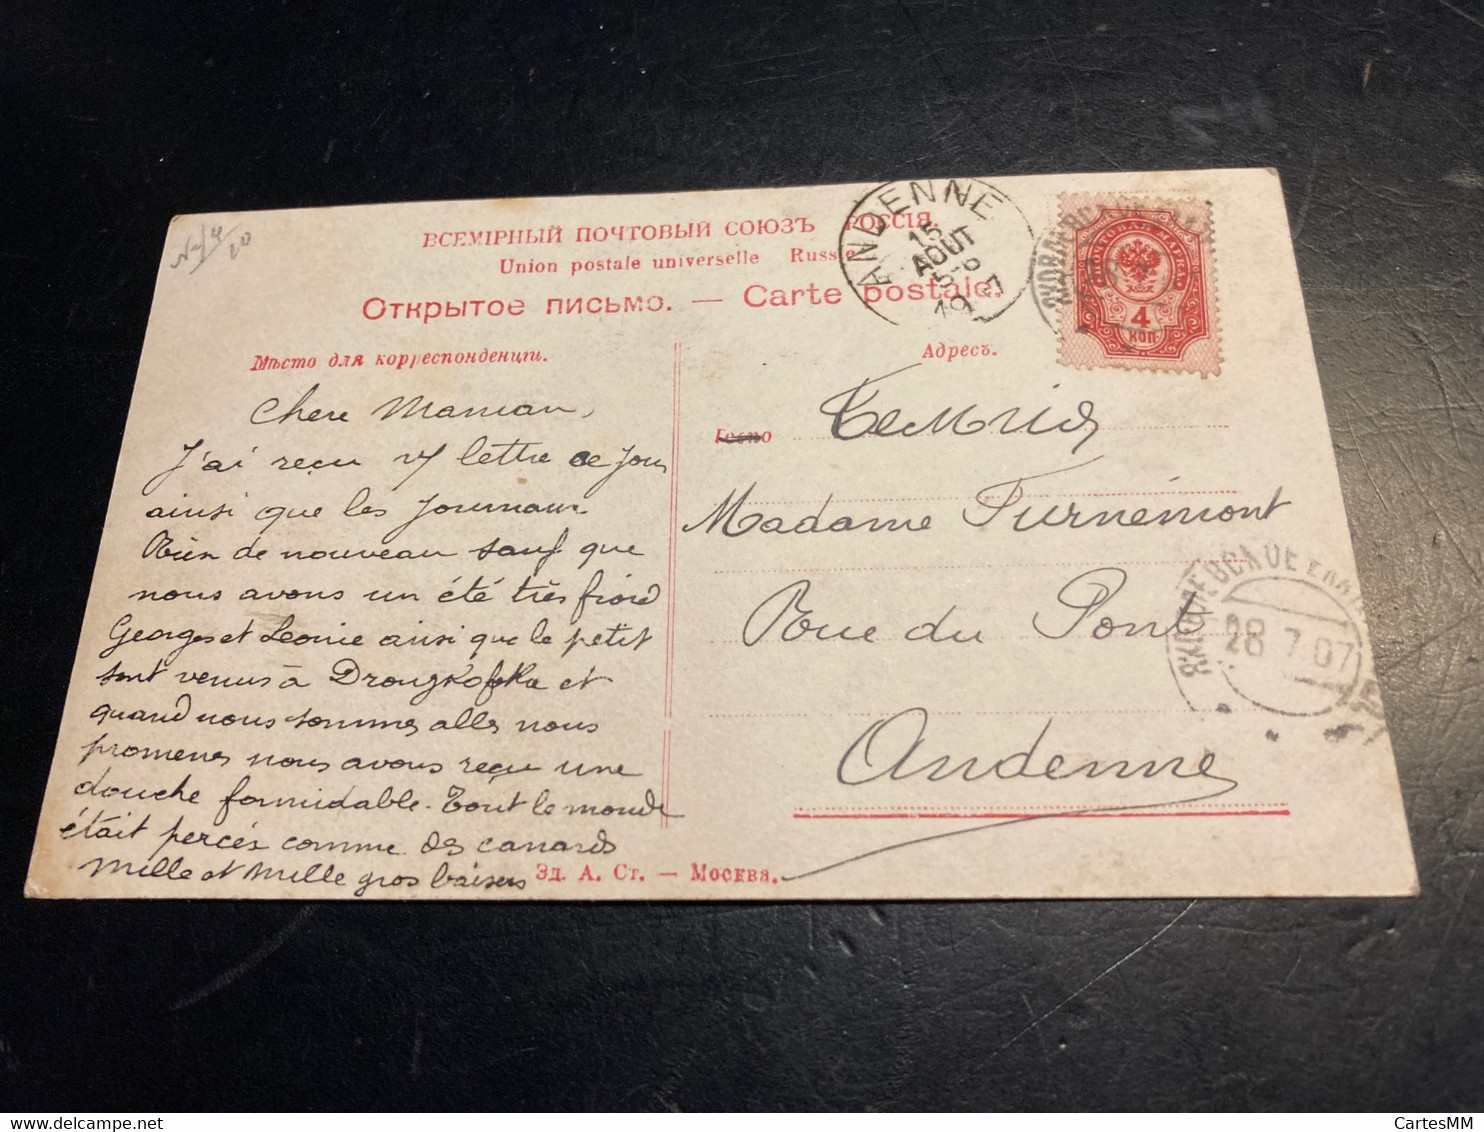 ВСЕМІРНЫЙ ПОЧТОВЫЙ СОЮЗЪ РОССІЯ
Union postale universelle Russie
Открытое письмо. — Carte postale.
Мѣсто для корреспонденціи.
Адресъ.
ANDENNE
15
AOUT
1907
ПОЧТОВАЯ МАРКА
4
КОП
Chere Maman,
J'ai reçu vf lettre ce jour
ainsi que les journaux
Rien de nouveau sauf que
nous avons un été très froid
Georges et Leonie ainsi que le petit
sont venus à
et
quand nous sommes allés nous
promener nous avons reçu une
douche formidable. Tout le monde
était percés comme des canards
Mille et Mille gros baisers
Madame Furnémont
Rue du Pont
Andenne
28 7 07
Эд. А. Ст. — Москва.
CartesMM